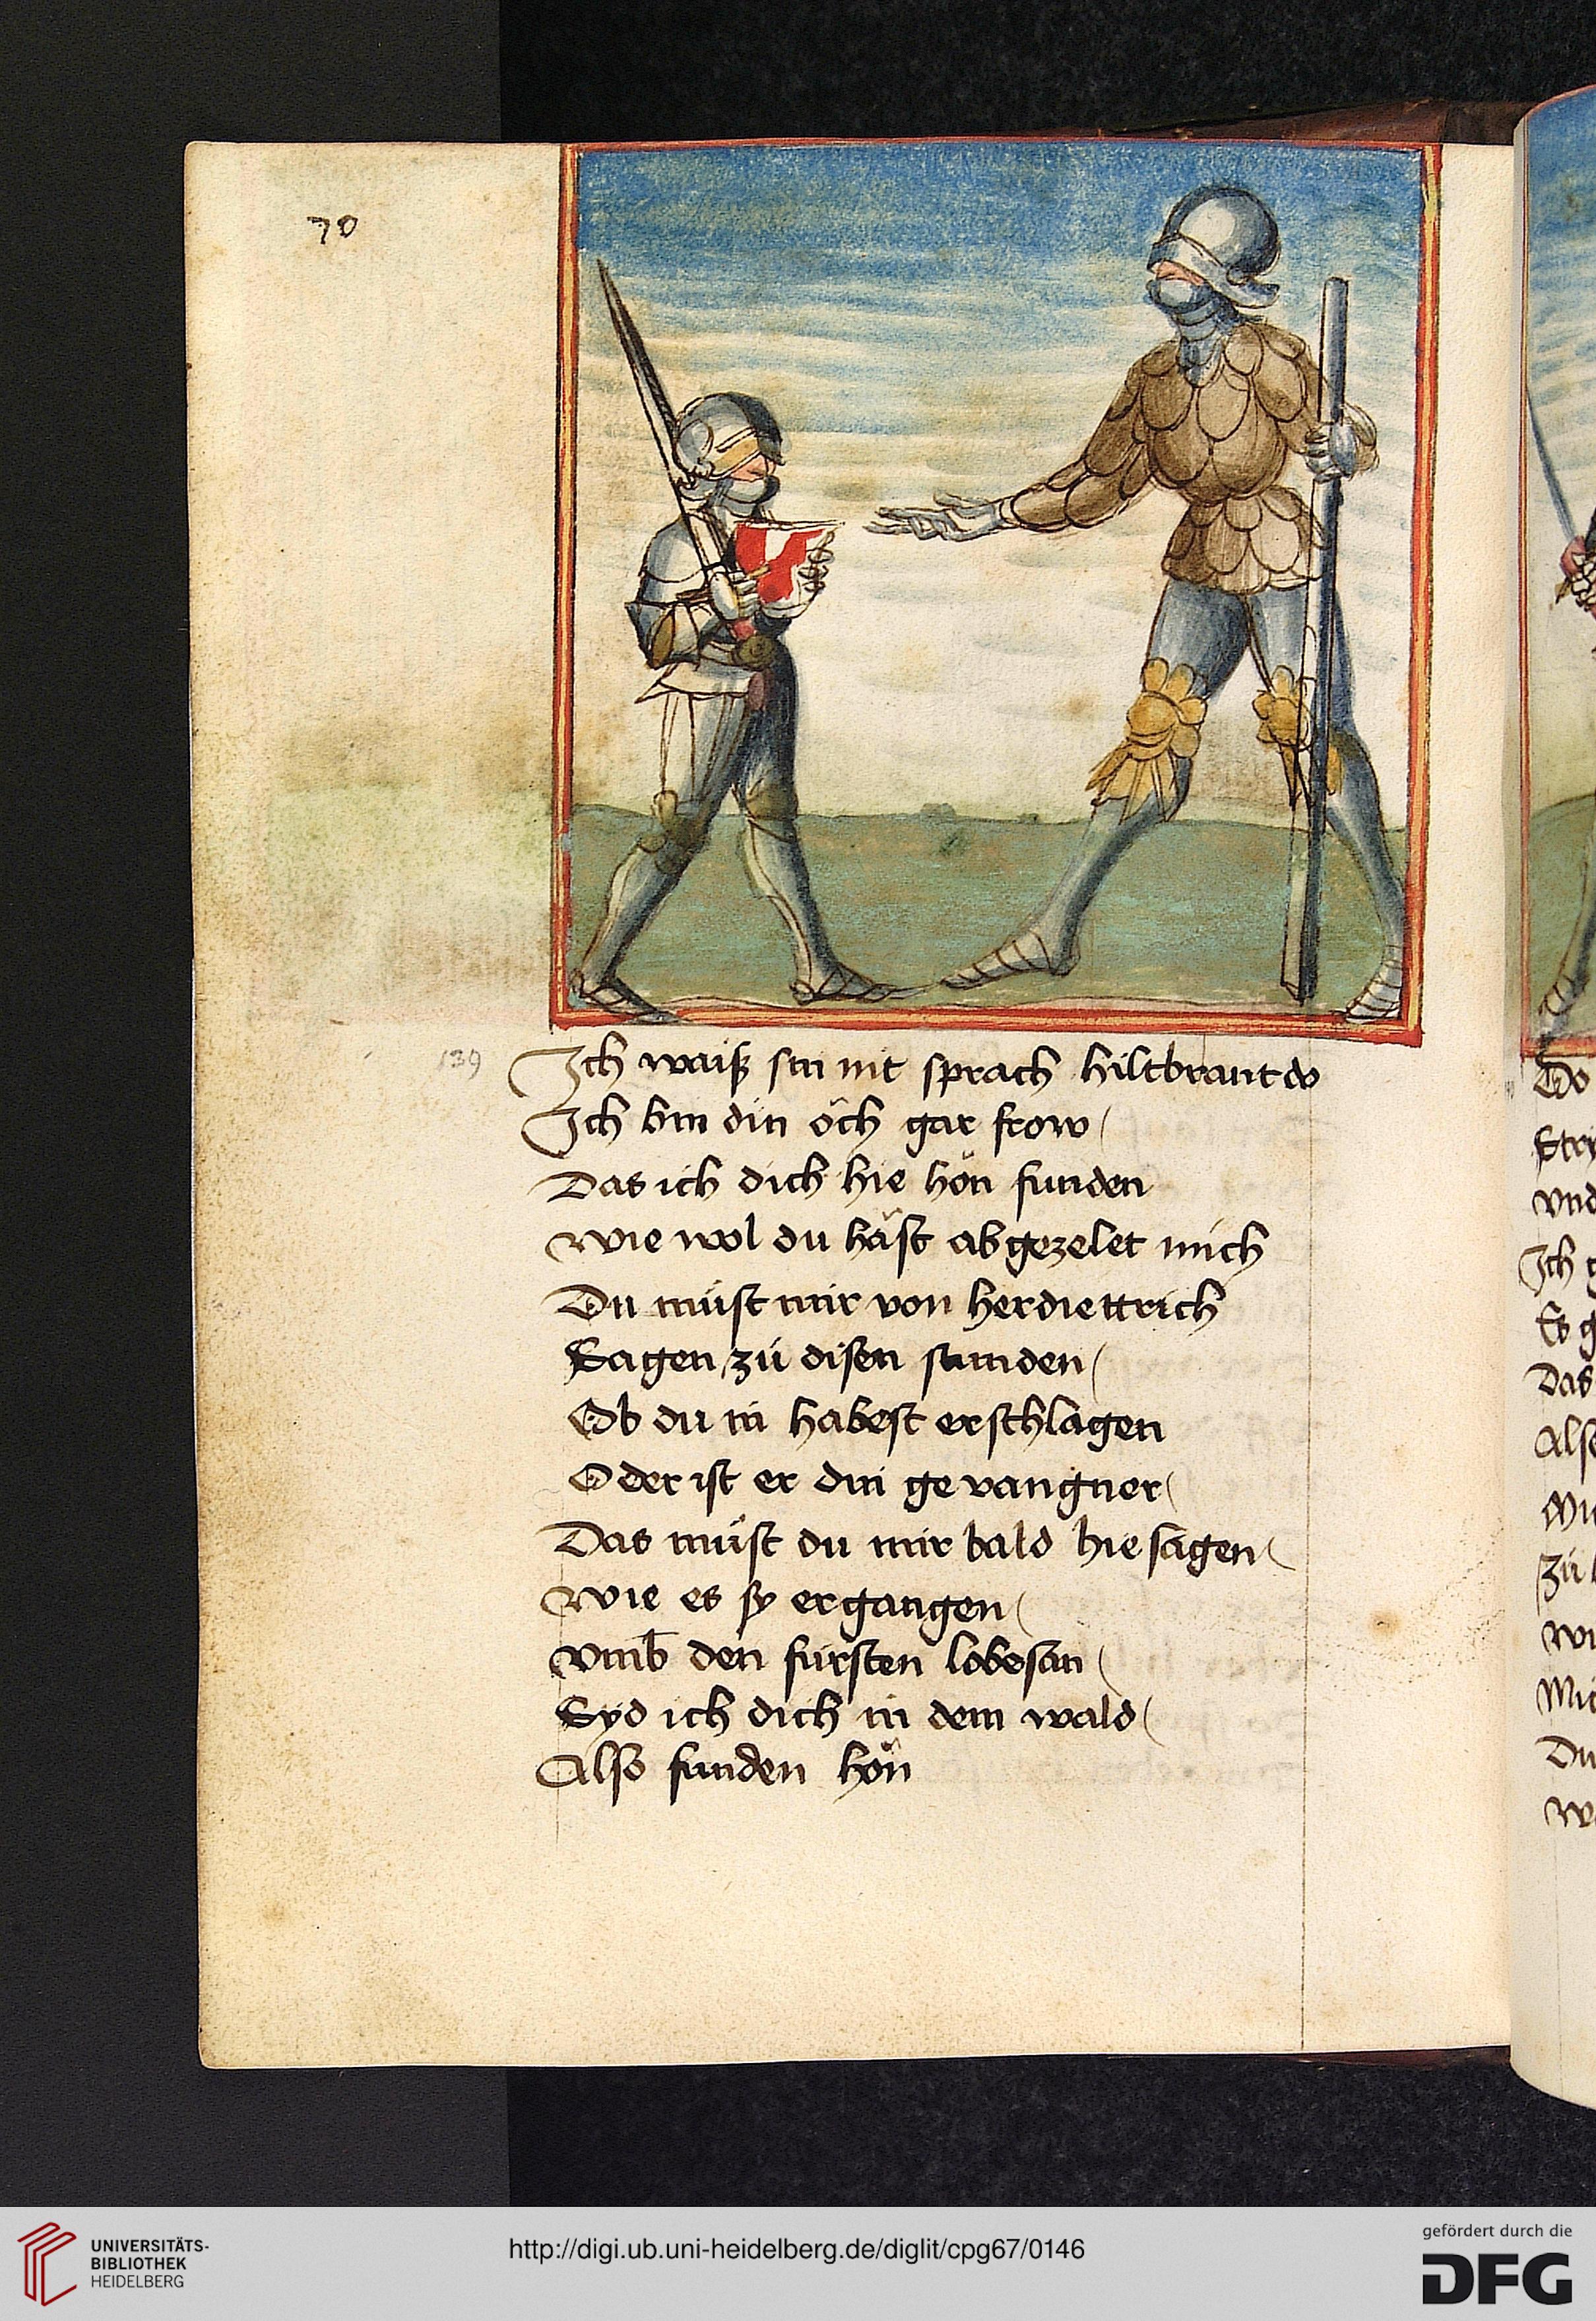 70
139
Ich waiß sin nit sprach hiltbrant do
Ich bin din öch gar frow
Das ich dich hie hön funden
wie wol du häst ab gezelet mich
Du müst mir von her diettrich
Sagen zü disen stunden
Ob du in habest erschlagen
Oder ist er din gevangner
Das müst du mir bald hie sagen
wie es sy ergangen
vmb den fürsten lobesan
Syd ich dich in dem wald
Also funden hön
Do
vnd
Ich
Es
Das
Mi
Zü
wi
Mi
Du
UNIVERSITÄTS-
BIBLIOTHEK
HEIDELBERG
http://digi.ub.uni-heidelberg.de/diglit/cpg67/0146
gefördert durch die
DFG